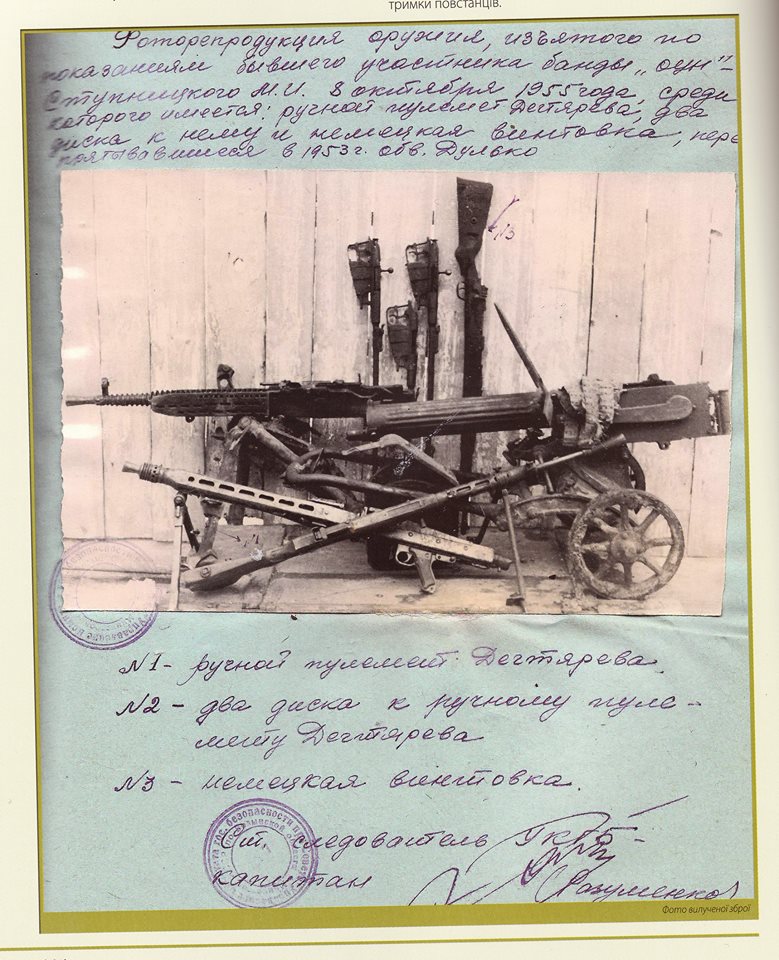 тримки повстанців.
Фоторепродукция оружия, изъятого по
показаниям бывшего участника банды „оун"-
Ступницкого М.И. 8 октября 1955 года, среди
которого имеется: ручной пулемет Дегтярева, два
диска к нему и немецкая винтовка, пере
прятывавшиеся в 1953 г. обв. Дулько
N3
N1
N1 - ручной пулемет Дегтярева
N2 - два диска к ручному пуле-
мету Дегтярева
N3 - немецкая винтовка.
Ст. следователь
капитан
Разуменко
Фото вилученої зброї